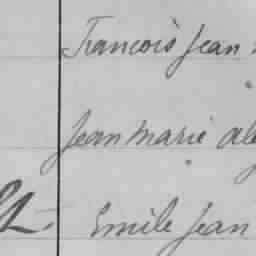 François Jean
Jean Marie
Emile Jean